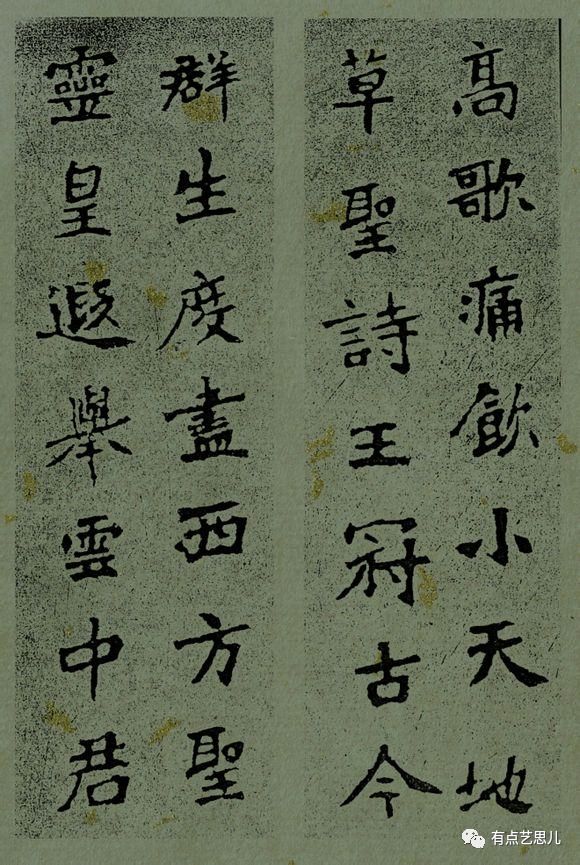 高歌痛飲小天地
草聖詩王冠古今
群生度盡西方聖
靈皇遐舉雲中君
有点艺思儿